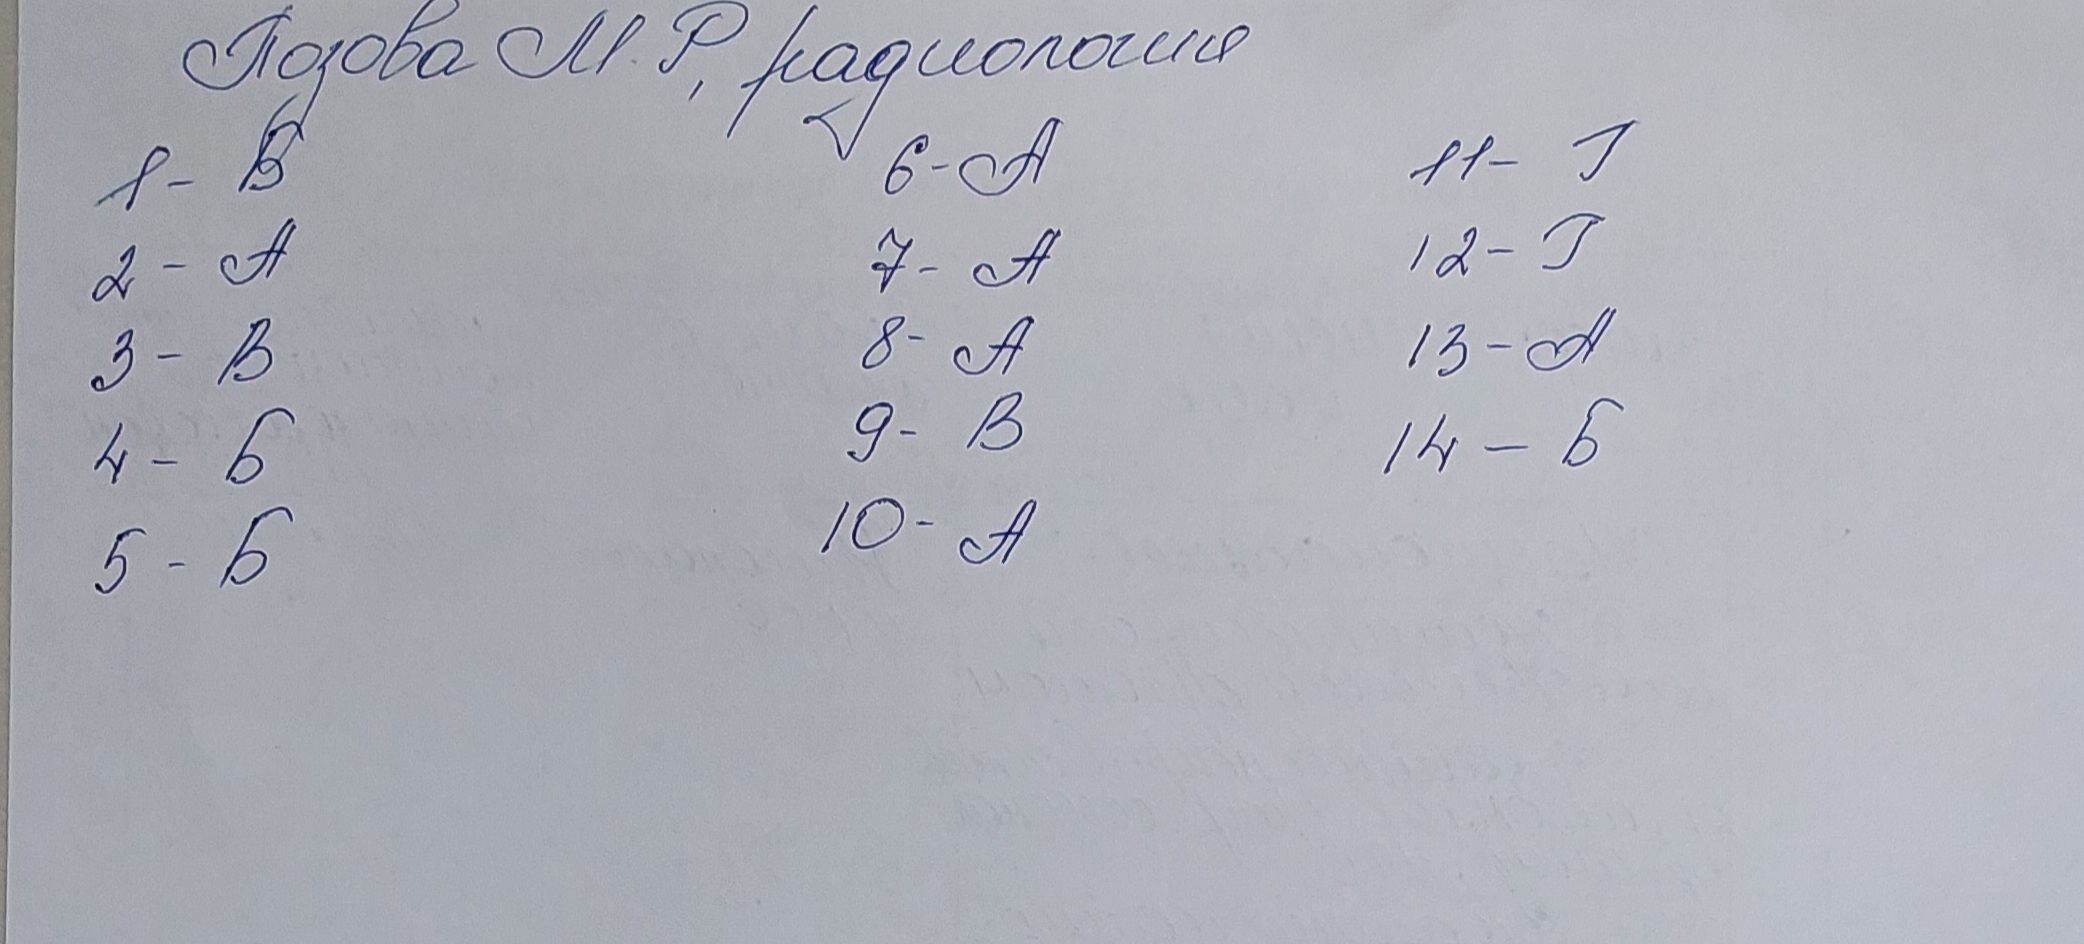 Позова М. Р., радиология
1 - В
2 - А
3 - В
4 - Б
5 - Б
6 - А
7 - А
8 - А
9 - В
10 - А
11 - Г
12 - Г
13 - А
14 - Б